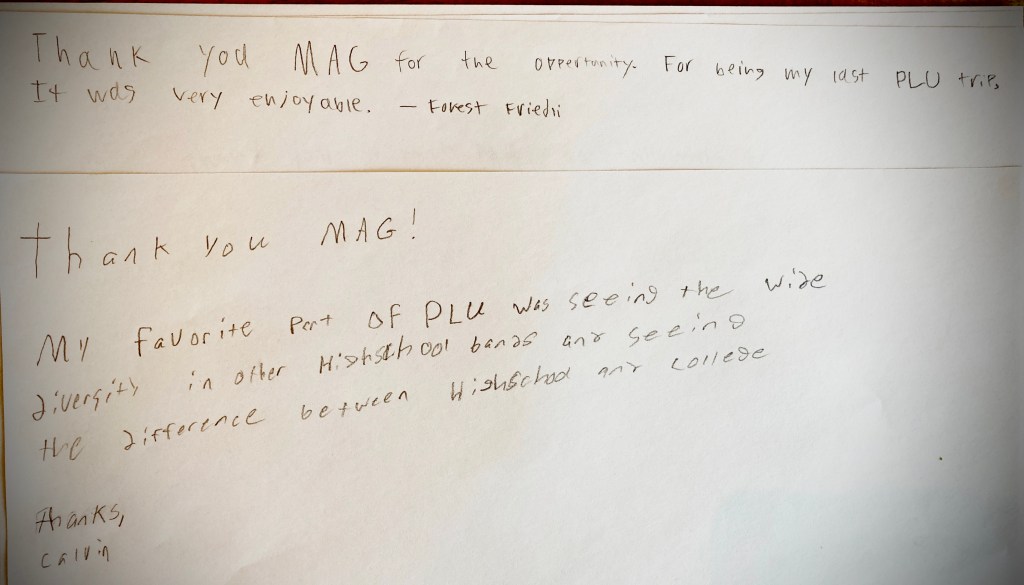 Thank you MAG for the opportunity. For being my last PLU trip,
It was very enjoyable. — Forest Friedli
Thank you MAG!
My favorite part of PLU was seeing the wide
diversity in other Highschool bands and seeing
the difference between Highschool and college
Thanks,
Calvin